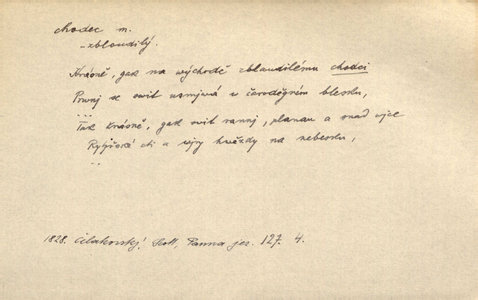 chodec m.
-zbloudilý.
Krásně, gak na wýchodě zblaudilému chodci
Prwnj se swit usmjwá w čaroděgném blesku,
...
Tak krásně, gak swit rannj, planau a snad wjce
Rytjřské cti a wjry hwězdy na nebesku,
..
1828. Čelakovský, Scott, Panna jez. 127. 4.